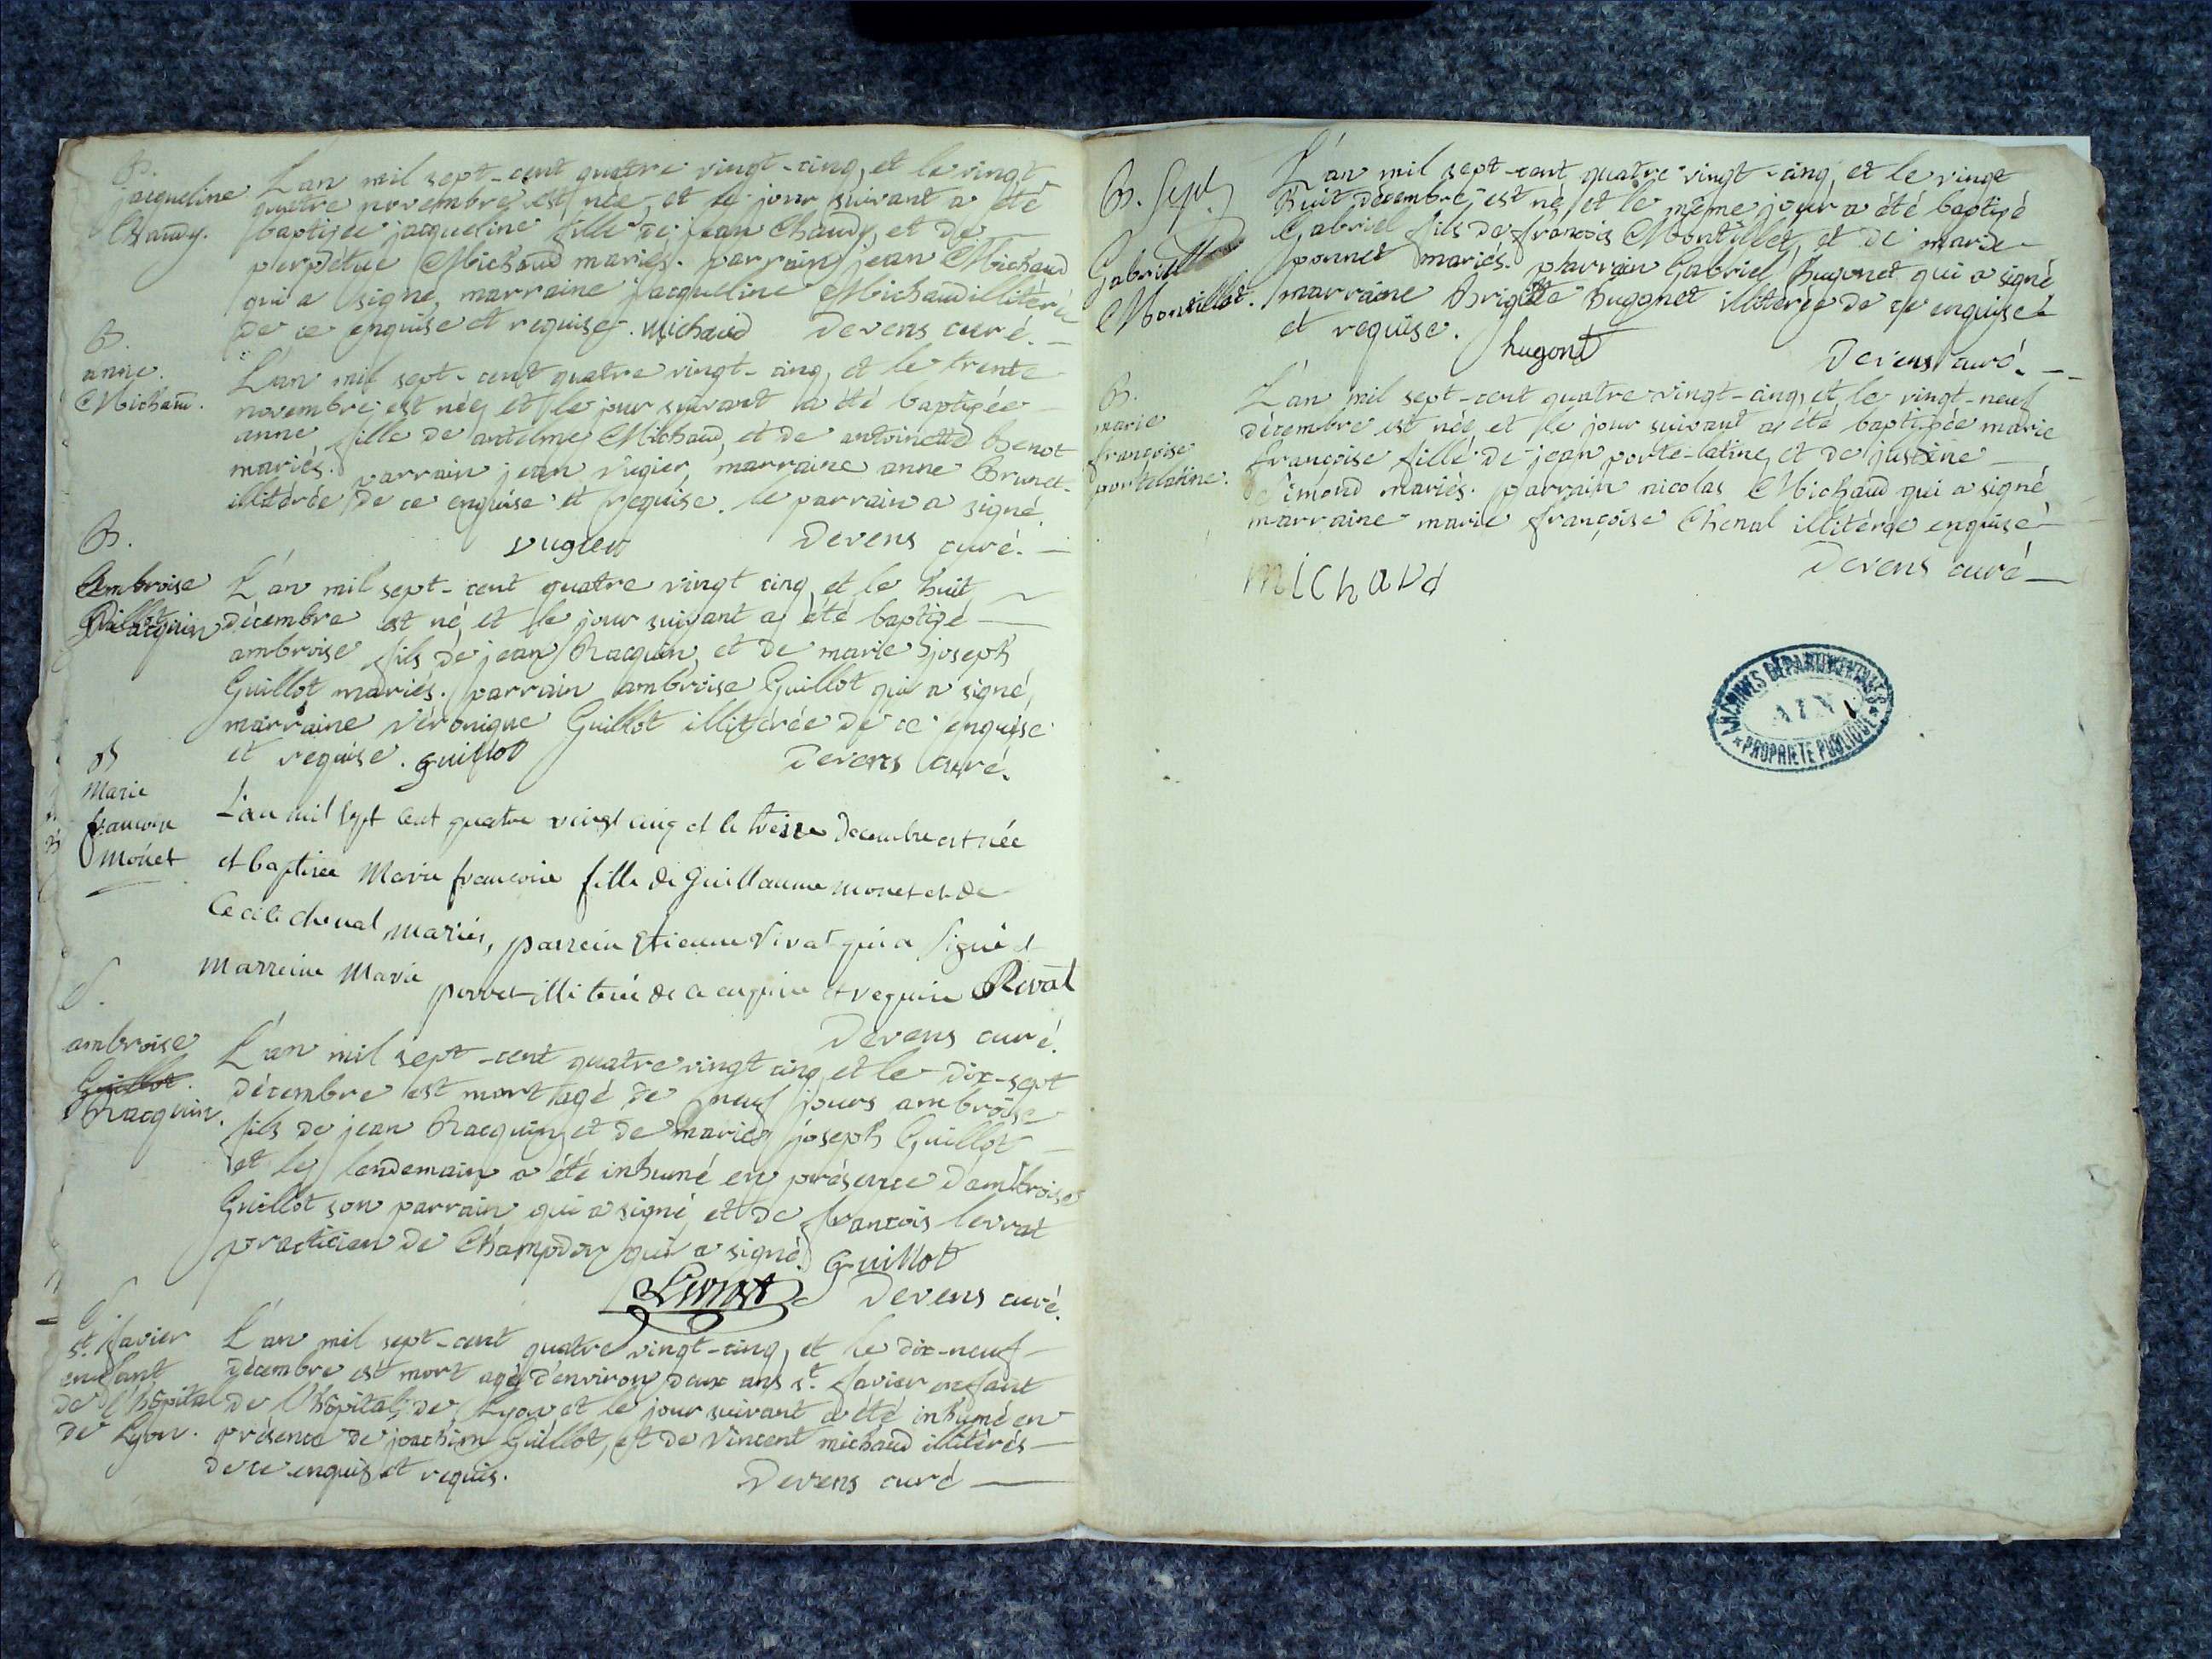 B.
jacqueline
Chaudy.
L'an mil sept-cent quatre vingt-cinq, et le vingt
quatre novembre est née, et le jour suivant a été
baptizée jacqueline fille de jean Chaudy, et de
perpetue Michaud mariés. parrain jean Michaud
qui a signé, marraine jacqueline Michaud illitérée
de ce enquise et requise. Michaud Devens curé.
B.
anne
Michaud.
L'an mil sept-cent quatre vingt-cinq, et le trente
novembre est née, et le jour suivant a été baptizée
anne fille de antelme Michaud, et de antoinette benot
mariés. parrain jean vugier, marraine anne Brunet
illitérée de ce enquise et requise. le parrain a signé.
vugier Devens curé.
B.
Ambroise
Racquin
L'an mil sept-cent quatre vingt cinq, et le huit
décembre est né, et le jour suivant a été baptizé
ambroise fils de jean Racquin, et de marie joseph
Guillot mariés. parrain ambroise Guillot qui a signé,
marraine véronique Guillot illitérée de ce enquise
et requise. guillot Devens curé.
B
Marie
francoise
Monet
L'an mil sept cent quatre vingt cinq et le treize decembre est née
et baptisée Marie francoise fille de guillaume monet et de
Cecile chenal mariés, parrein Etienne Rivat qui a signé et
marreine Marie ponet illiterée de ce enquise et requise Rivat
Devens curé.
S.
ambroise
Guillot.
Racquin.
L'an mil sept-cent quatre vingt cinq, et le dix-sept
décembre est mort agé de neuf jours ambroise
fils de jean Racquin, et de marie joseph Guillot
et le lendemain a été inhumé en présence d'ambroise
Guillot son parrain qui a signé, et de francois levrat
practicien de Champdor qui a signé. guillot
Levrat Devens curé.
S
st. Xavier
enfant
de l'hôpital
de Lyon.
L'an mil sept-cent quatre vingt-cinq, et le dix-neuf
décembre est mort agé d'environ deux ans st. Xavier enfant
de l'hôpital de Lyon et le jour suivant a été inhumé en
présence de joachim Guillot, et de vincent michaud illitérés
de ce enquis et requis.
Devens curé
B. Sept.
Gabriel
Montillet.
L'an mil sept-cent quatre vingt-cinq, et le vingt
huit décembre est né, et le même jour a été baptizé
Gabriel fils de francois Montillet, et de marie
ponnet mariés. parrain Gabriel hugonet qui a signé
marraine Brigitte hugonet illiterée de ce enquise
et requise. hugonet
Devens curé.
B.
marie
françoise
portelatine.
L'an mil sept-cent quatre vingt-cinq, et le vingt-neuf
décembre est née, et le jour suivant a été baptizée marie
françoise fille de jean porte-latine, et de justine
Emond mariés. parrain nicolas Michaud qui a signé,
marraine marie françoise Chenal illitérée enquise
Devens curé
michaud
ARCHIVES DÉPARTEMENTALES
AIN
* PROPRIETE PUBLIQUE *